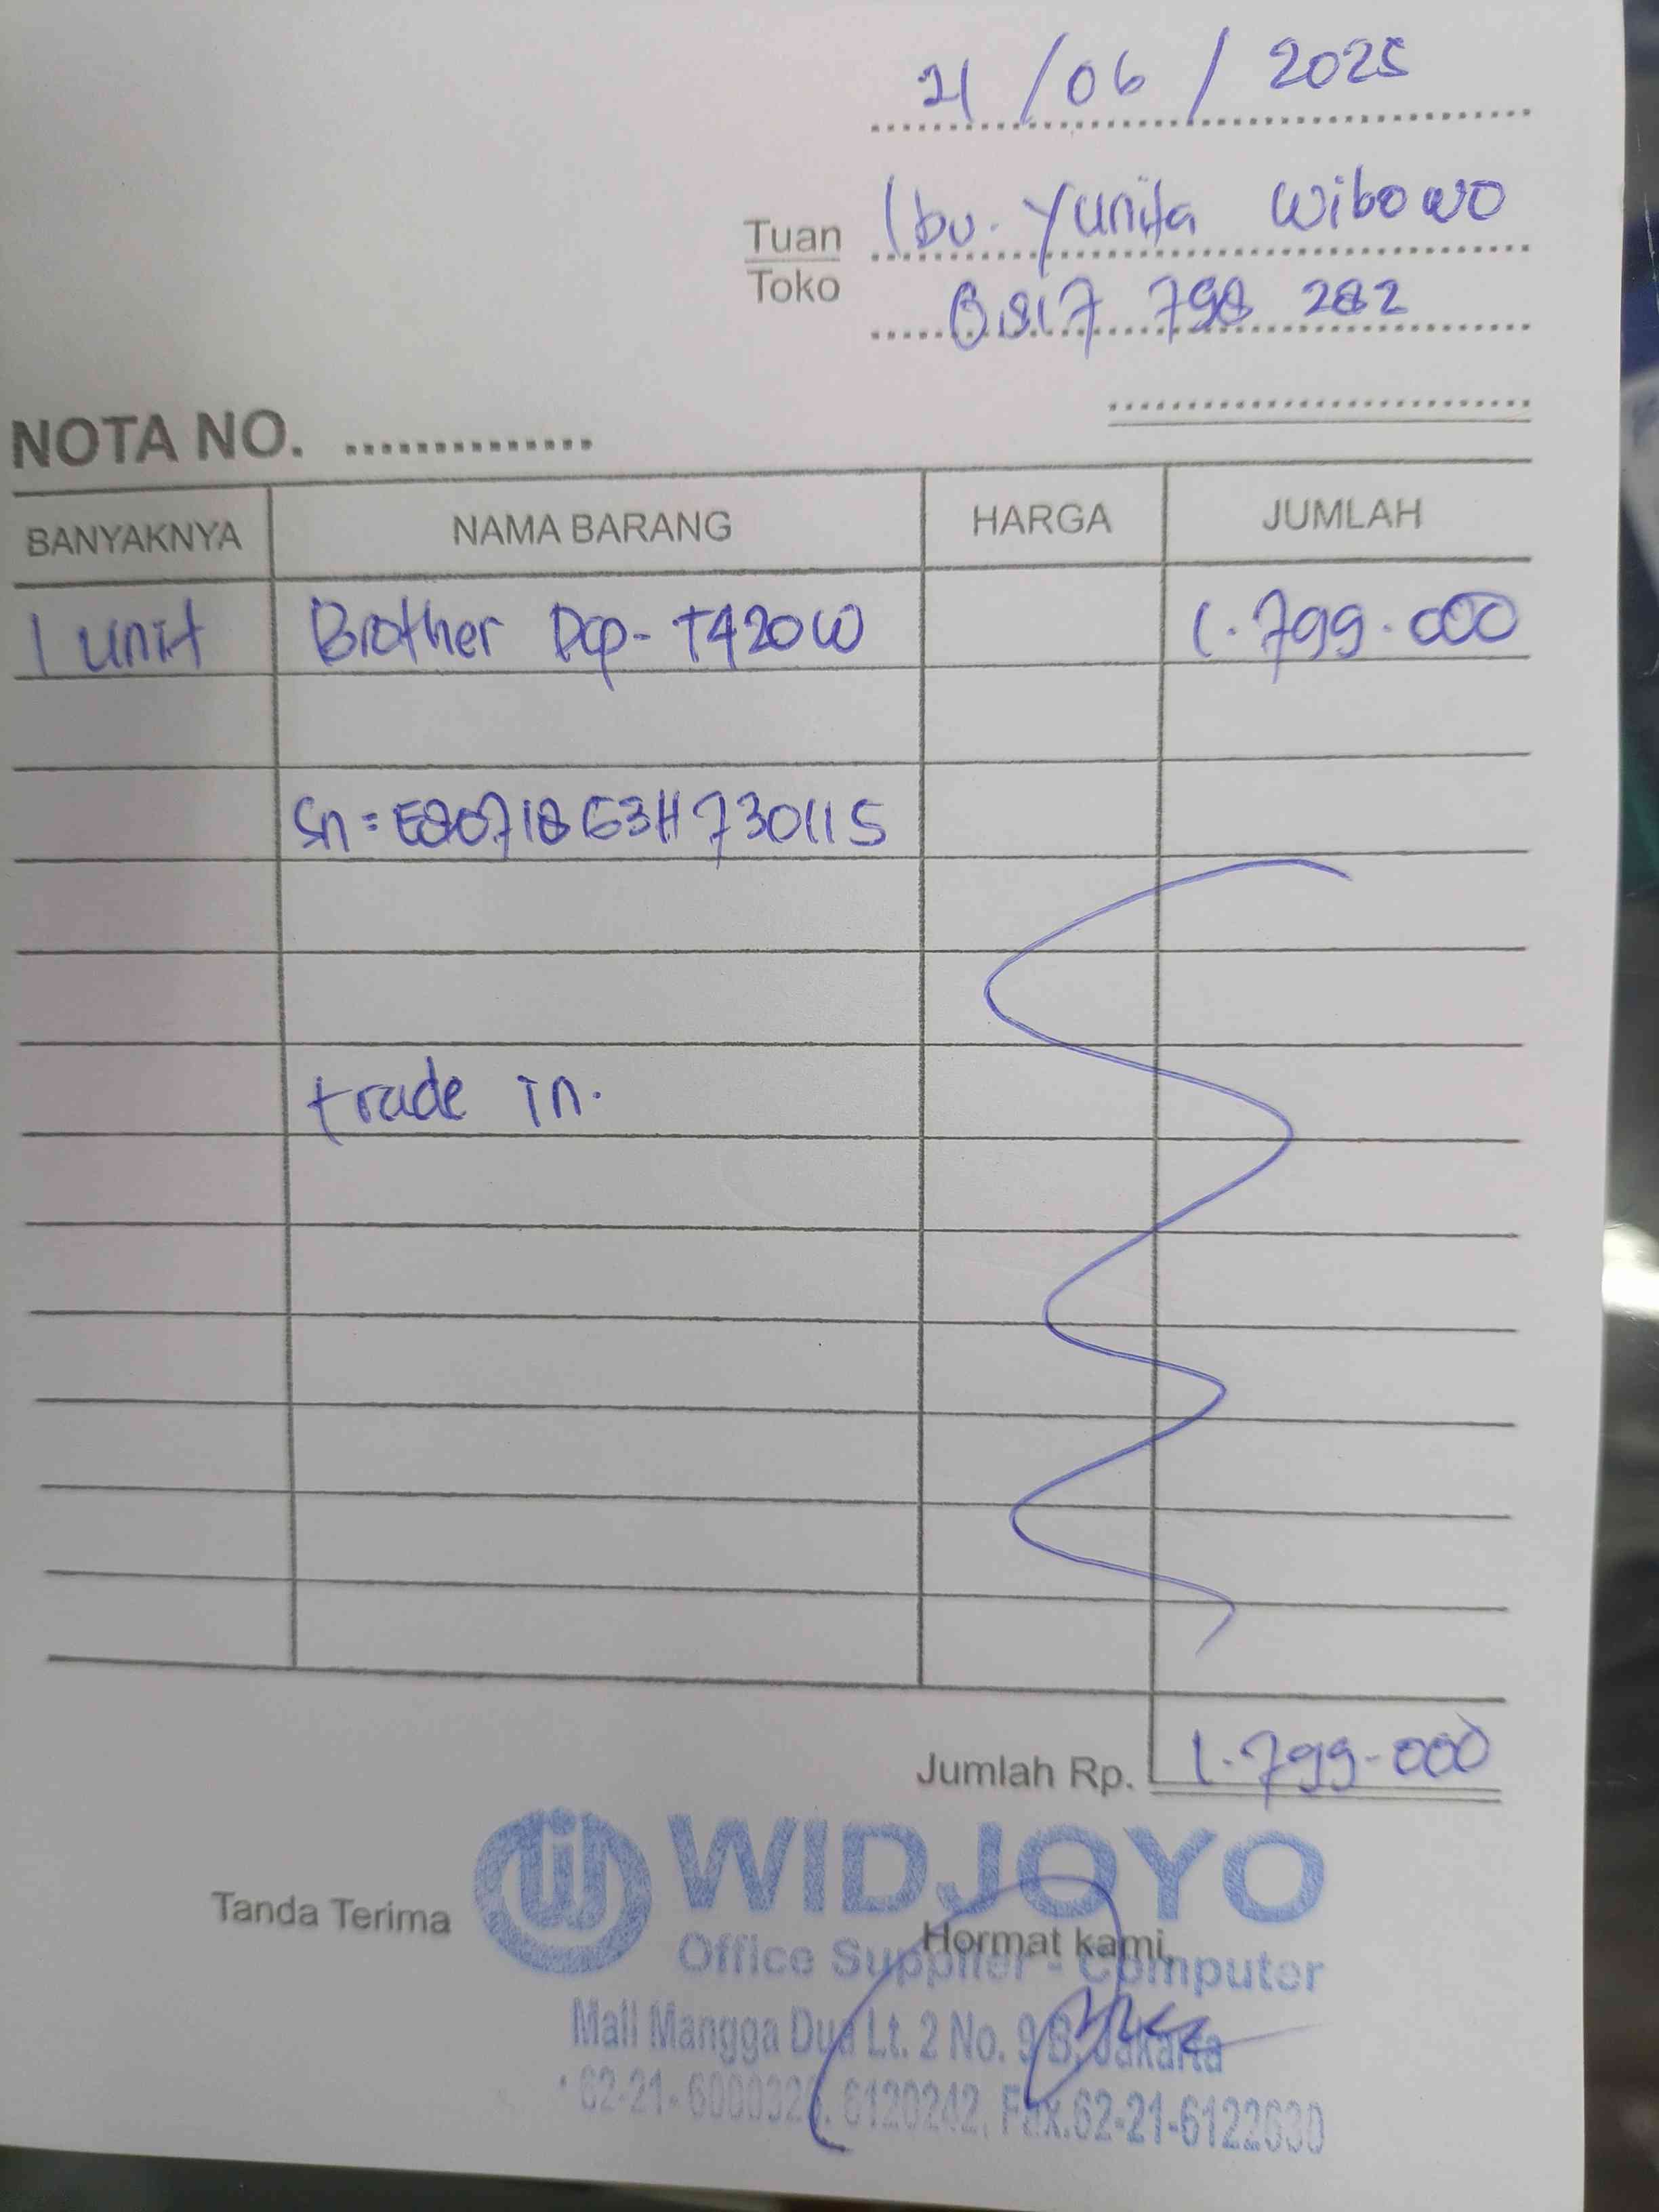 21 / 06 / 2025
Tuan Ibu. Yunita Wibowo
Toko 0817 798 282
NOTA NO. ..............
BANYAKNYA NAMA BARANG HARGA JUMLAH
1 unit Brother Dcp-T420W 1.799.000
Sn = E80718G3H730115
trade in.
Jumlah Rp. 1.799.000
WIDJOYO
Tanda Terima
Hormat kami,
Office Supplier - Computer
Mall Mangga Dua Lt. 2 No. 9 B, Jakarta
6120242, Fax.62-21-6122630